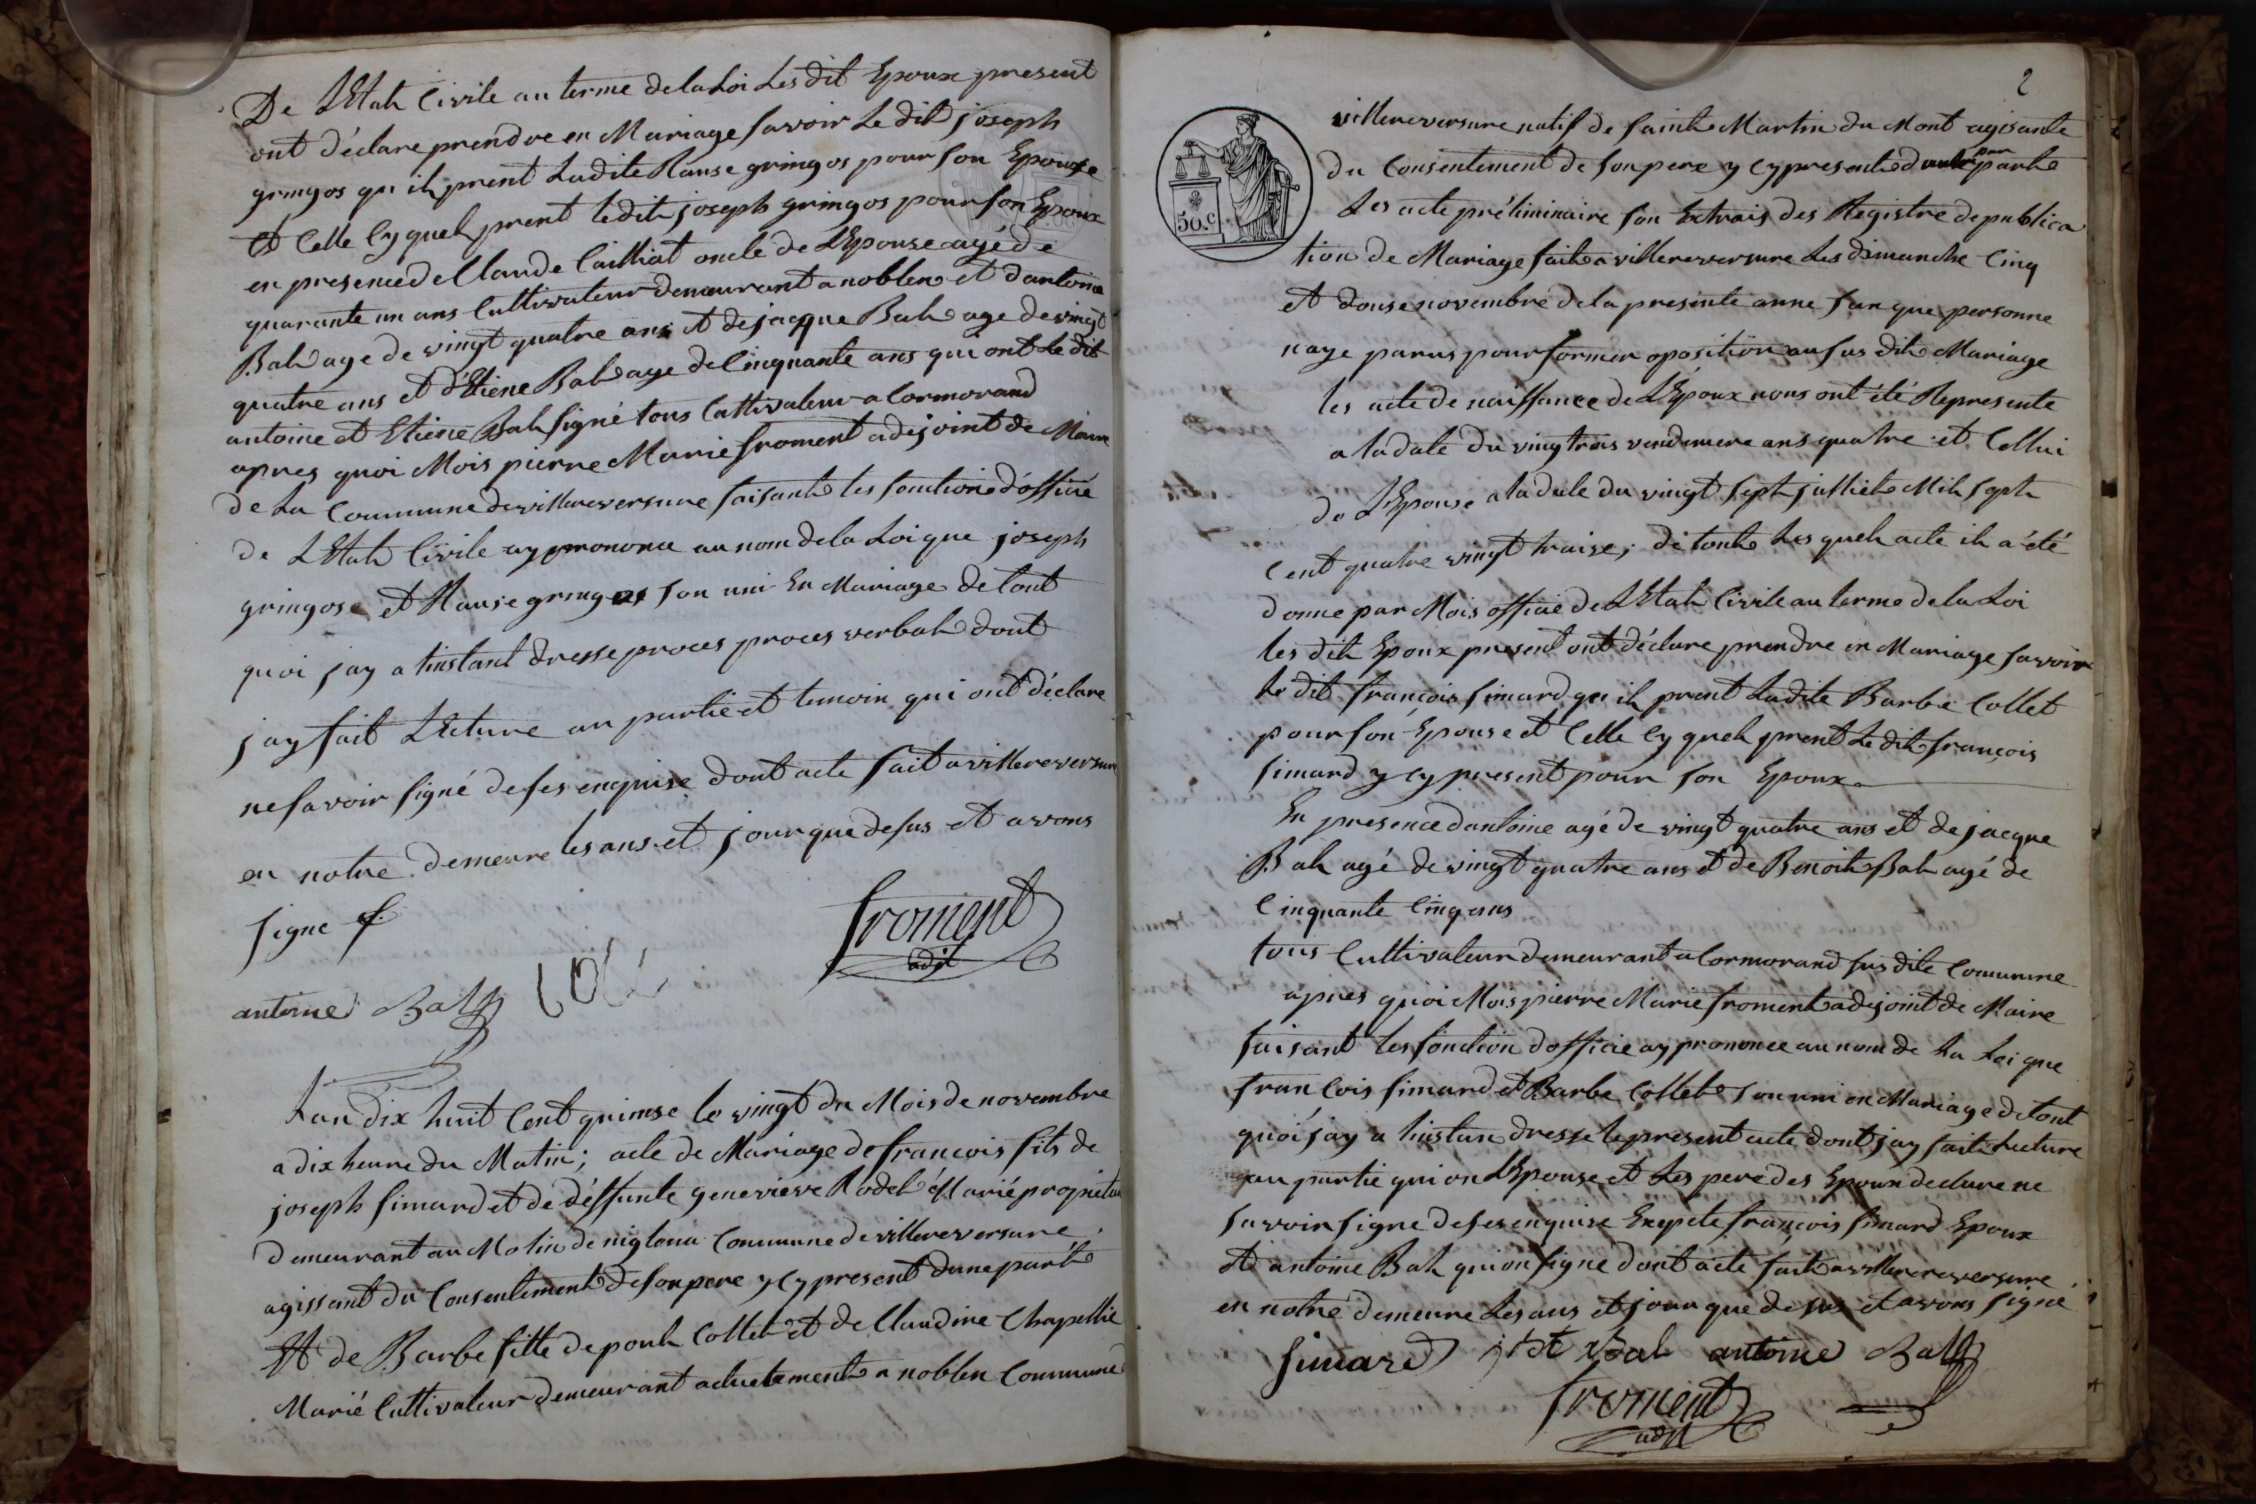 De L'Etat Civile au terme de la Loi Les dit Epoux present
ont déclare prendre en Mariage savoir Le dit joseph
gringos qu il prent Ladite Ranse gringos pour son Epouse
Et Celle Cy quel prent le dit joseph gringos pour son Epoux
en presence de Claude Cailliat oncle de L'Epouse agé de
quarante un ans Cultivateur demeurant a noblen et dantoine
Bal age de vingt quatre ans et de jacque Bal age de vingt
quatre ans et d'Etiene Bal age de Cinquante ans qui ont le dit
antoine et Etiene Bal signé tous Cultivateur a Cormorand
apres quoi Mois pierre Marie froment adejoint de Maire
de La Commune de villereversure faisant les fonction d'officié
de L'Etat Civile ay prononce au nom de la Loi que joseph
gringos et Ranse gringos son uni En Mariage de tout
quoi jay a linstant dresse proces proces verbal dont
jay fait Lecture au partie et temoin qui ont déclare
ne savoir signé de ses enquise dont acte fait a villereversure
en notre demeure les ans et jour que desus et avons
signe
froment
adjt
antoine Bal
Lan dix huit Cent quinse le vingt du Mois de novembre
a dix heure du Matin; acte de Mariage de francois fils de
joseph simard et de déffunte genevieve Rodet Marié proprietaire
demeurant au Molin de niglona Commune de villereversure
agissant du Consentement de son pere y Cy present dune part
Et de Barbe fille de poul Collet et de Claudine Chapellie
Marié Cultivateur demeurant actuelement a noblen Commune
2
50.c
villereversure natif de saint Martin du Mont agisante
du Consentement de son pere y Cy present d par parte
Les acte préliminaire son Extrais des Registre de publica
tion de Mariage fait a villereversure Les dimanche Cinq
et douse novembre de la presente anne san que personne
naye parus pour former oposition au sus dit Mariage
les acte de naissance de L'Epoux nous ont été Represente
a la date du vingtrois vendemiere ans quatre et Cellui
de L'Epouse a la date du vingt sept julliet Mil sept
Cent quatre vingt traise; de tout Les quel acte il a été
donne par Mois officié de L'Etat Civile au terme de la Loi
les dit Epoux present ont déclare prendre en Mariage savoir
le dit francois simard qu il prent Ladite Barbe Collet
pour son Epouse et Celle Cy quel prent Le dit francois
simard y Cy present pour son Epoux
En presence dantoine agé de vingt quatre ans et de jacque
Bal agé de vingt quatre ans et de Benoit Bal agé de
Cinquante Cinq ans
tous Cultivateur demeurant a Cormorand sus dite Commune
apres quoi Mois pierre Marie froment adejoint de Maire
faisant les fonction d officie ay prononce au nom de La Loi que
francois simard et Barbe Collet son uni en Mariage de tout
quoi jay a linstan dresse le present acte dont jay fait Lecture
au partie qui on L'Epouse et Les pere des Epoux declare ne
savoir signe de ses enquise Exepte francois simard Epoux
et antoine Bal qui on signe dont acte fait a villereversure
en notre demeure Les ans et jour que desus et avons signé
simard Bal antoine Bal
froment
adjt